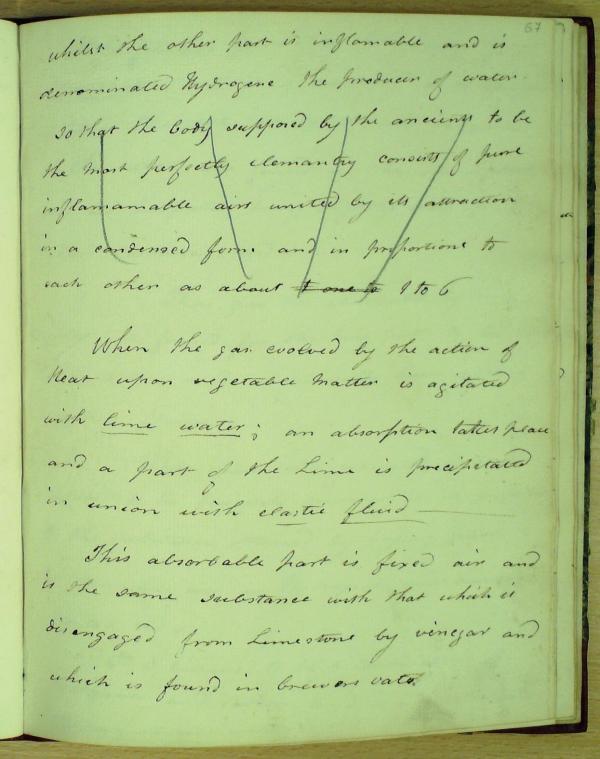 67
whilst the other part is inflamable and is
denominated Hydrogene the producer of water
so that the body supposed by the ancients to be
the most perfectly elemantry consists of pure
inflamamable airs united by its attraction
in a condensed form and in proportions to
each other as about to one to 1 to 6
When the gas evolved by the action of
Heat upon vegetable matter is agitated
with lime water; an absorption takes place
and a part of the Lime is precipetated
in union with elastic fluid —
This absorbable part is fixed air and
is the same substance with that which is
disengaged from Limestone by vinegar and
which is found in brewers vats.